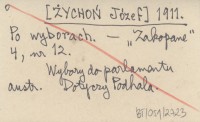 [ŻYCHOŃ Józef] 1911.
Po wyborach. — „Zakopane"
4, nr 12.
Wybory do parlamentu
austr. Dotyczy Podhala.